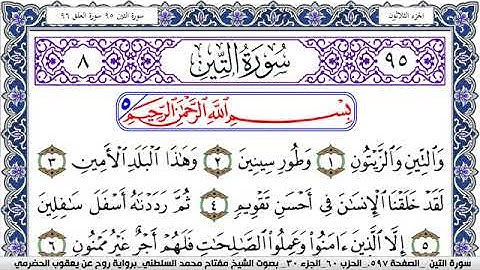 الجزء الثلاثون سورة التين ٩٥ سورة العلق ٩٦
٩٥ سُورَةُ التِّينِ ٨
بِسْمِ اللَّهِ الرَّحْمَٰنِ الرَّحِيمِ ٥
وَالتِّينِ وَالزَّيْتُونِ ١ وَطُورِ سِينِينَ ٢ وَهَٰذَا الْبَلَدِ الْأَمِينِ ٣
لَقَدْ خَلَقْنَا الْإِنسَٰنَ فِي أَحْسَنِ تَقْوِيمٍ ٤ ثُمَّ رَدَدْنَٰهُ أَسْفَلَ سَٰفِلِينَ
٥ إِلَّا الَّذِينَ ءَامَنُوا وَعَمِلُوا الصَّٰلِحَٰتِ فَلَهُمْ أَجْرٌ غَيْرُ مَمْنُونٍ ٦
سورة التين - الصفحة ٥٩٧ - الحزب ٦٠ - الجزء ٣٠ - بصوت الشيخ مفتاح محمد السلطني - برواية روح عن يعقوب الحضرمي